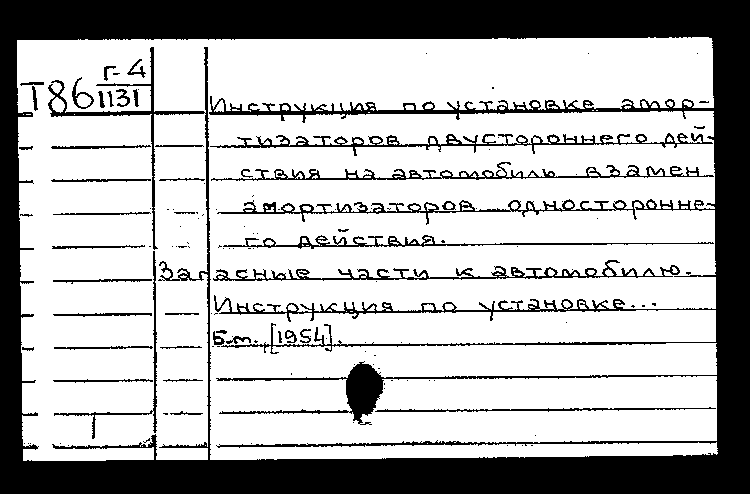 Т86 Г-4
1131
Инструкция по установке амор-
тизаторов двустороннего дей-
ствия на автомобиль взамен
амортизаторов односторонне-
го действия.
Запасные части к автомобилю.
Инструкция по установке...
Б.м., [1954].
1